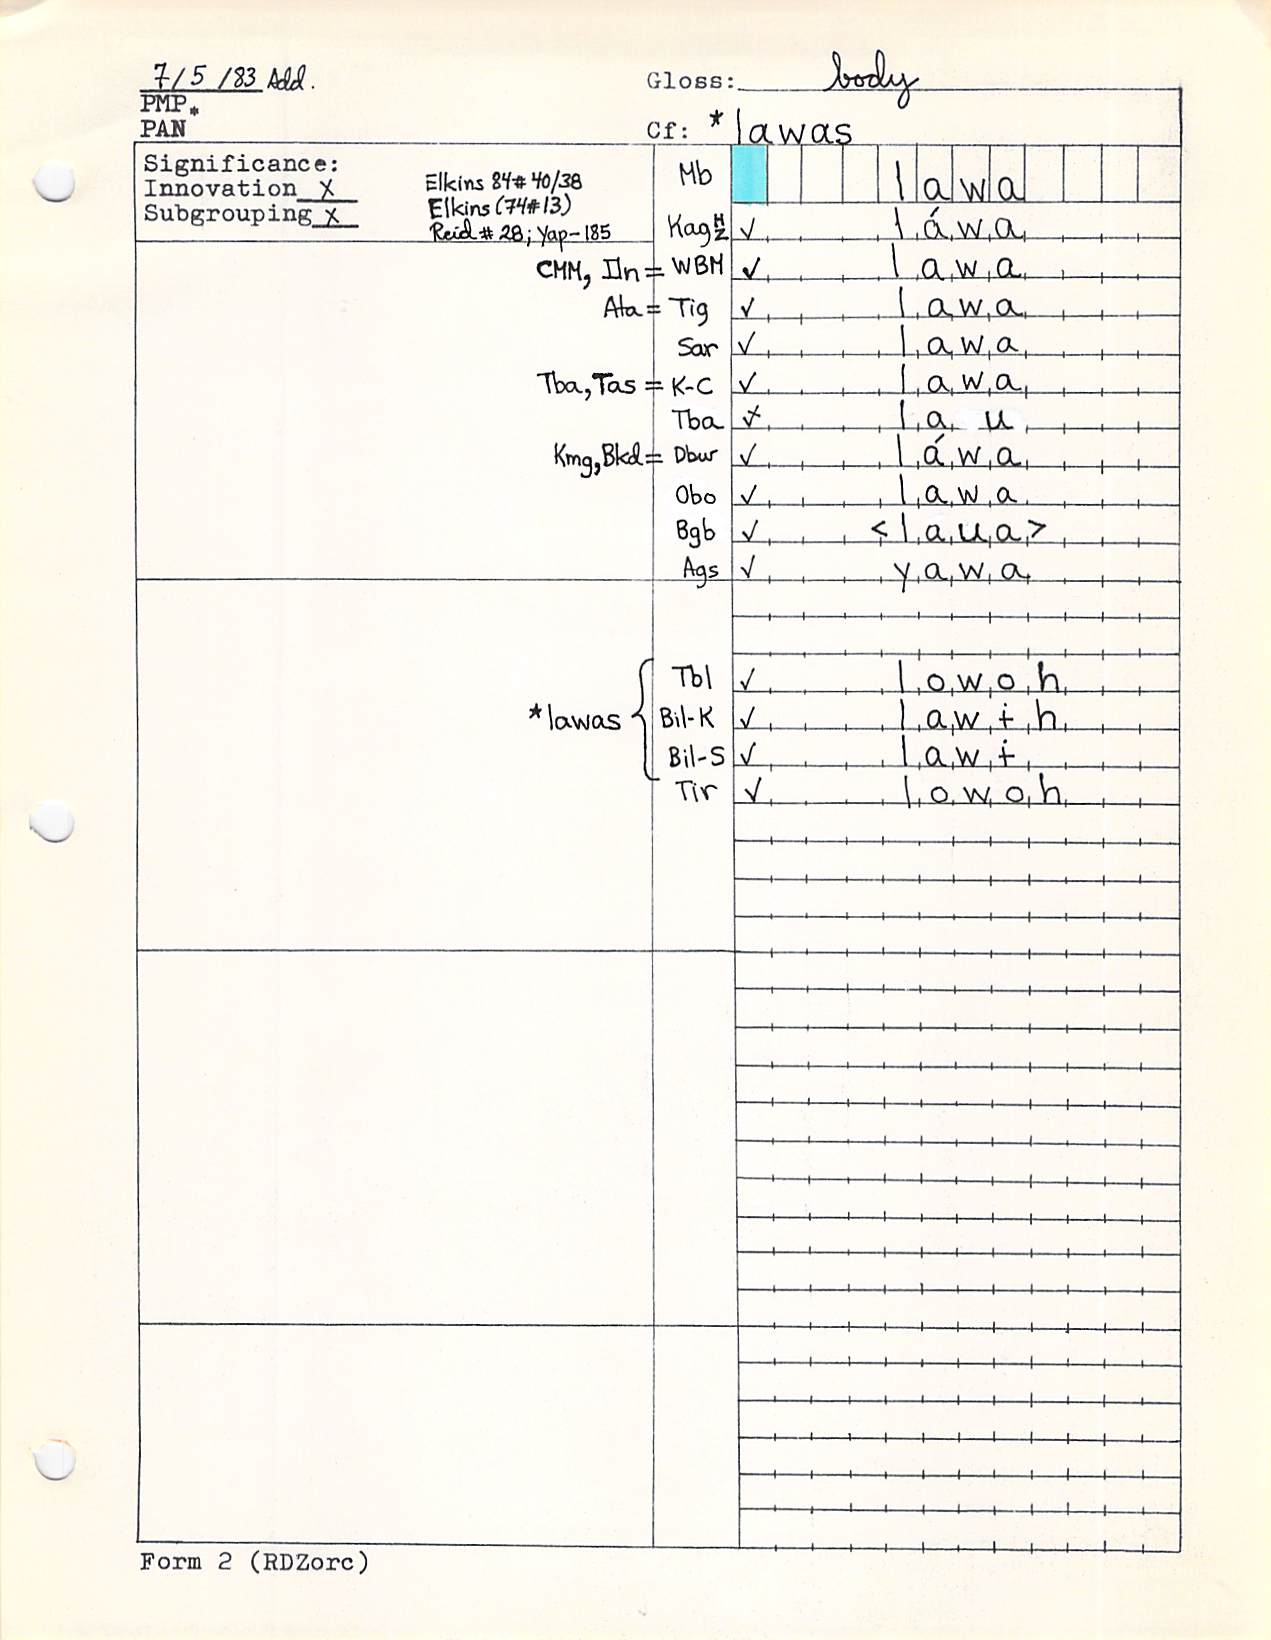 7/5/83 Add. Gloss: body
PMP*
PAN Cf: *lawas
Significance: Mb lawa
Innovation X Elkins 84#40/38
Subgrouping X Elkins (74#13)
Reid #28; Yap-185 Kag H Z ✓ láwa
CMM, Iln = WBM ✓ lawa
Ata = Tig ✓ lawa
Sar ✓ lawa
Tba, Tas = K-C ✓ lawa
Tba la u
Kmg, Bkd = Dbw ✓ láwa
Obo ✓ lawa
Bgb ✓ <laua>
Ags ✓ yawa
Tbl ✓ lowoh
*lawas { Bil-K ✓ lawɨh
Bil-S ✓ lawɨ
Tir ✓ lowoh
Form 2 (RDZorc)